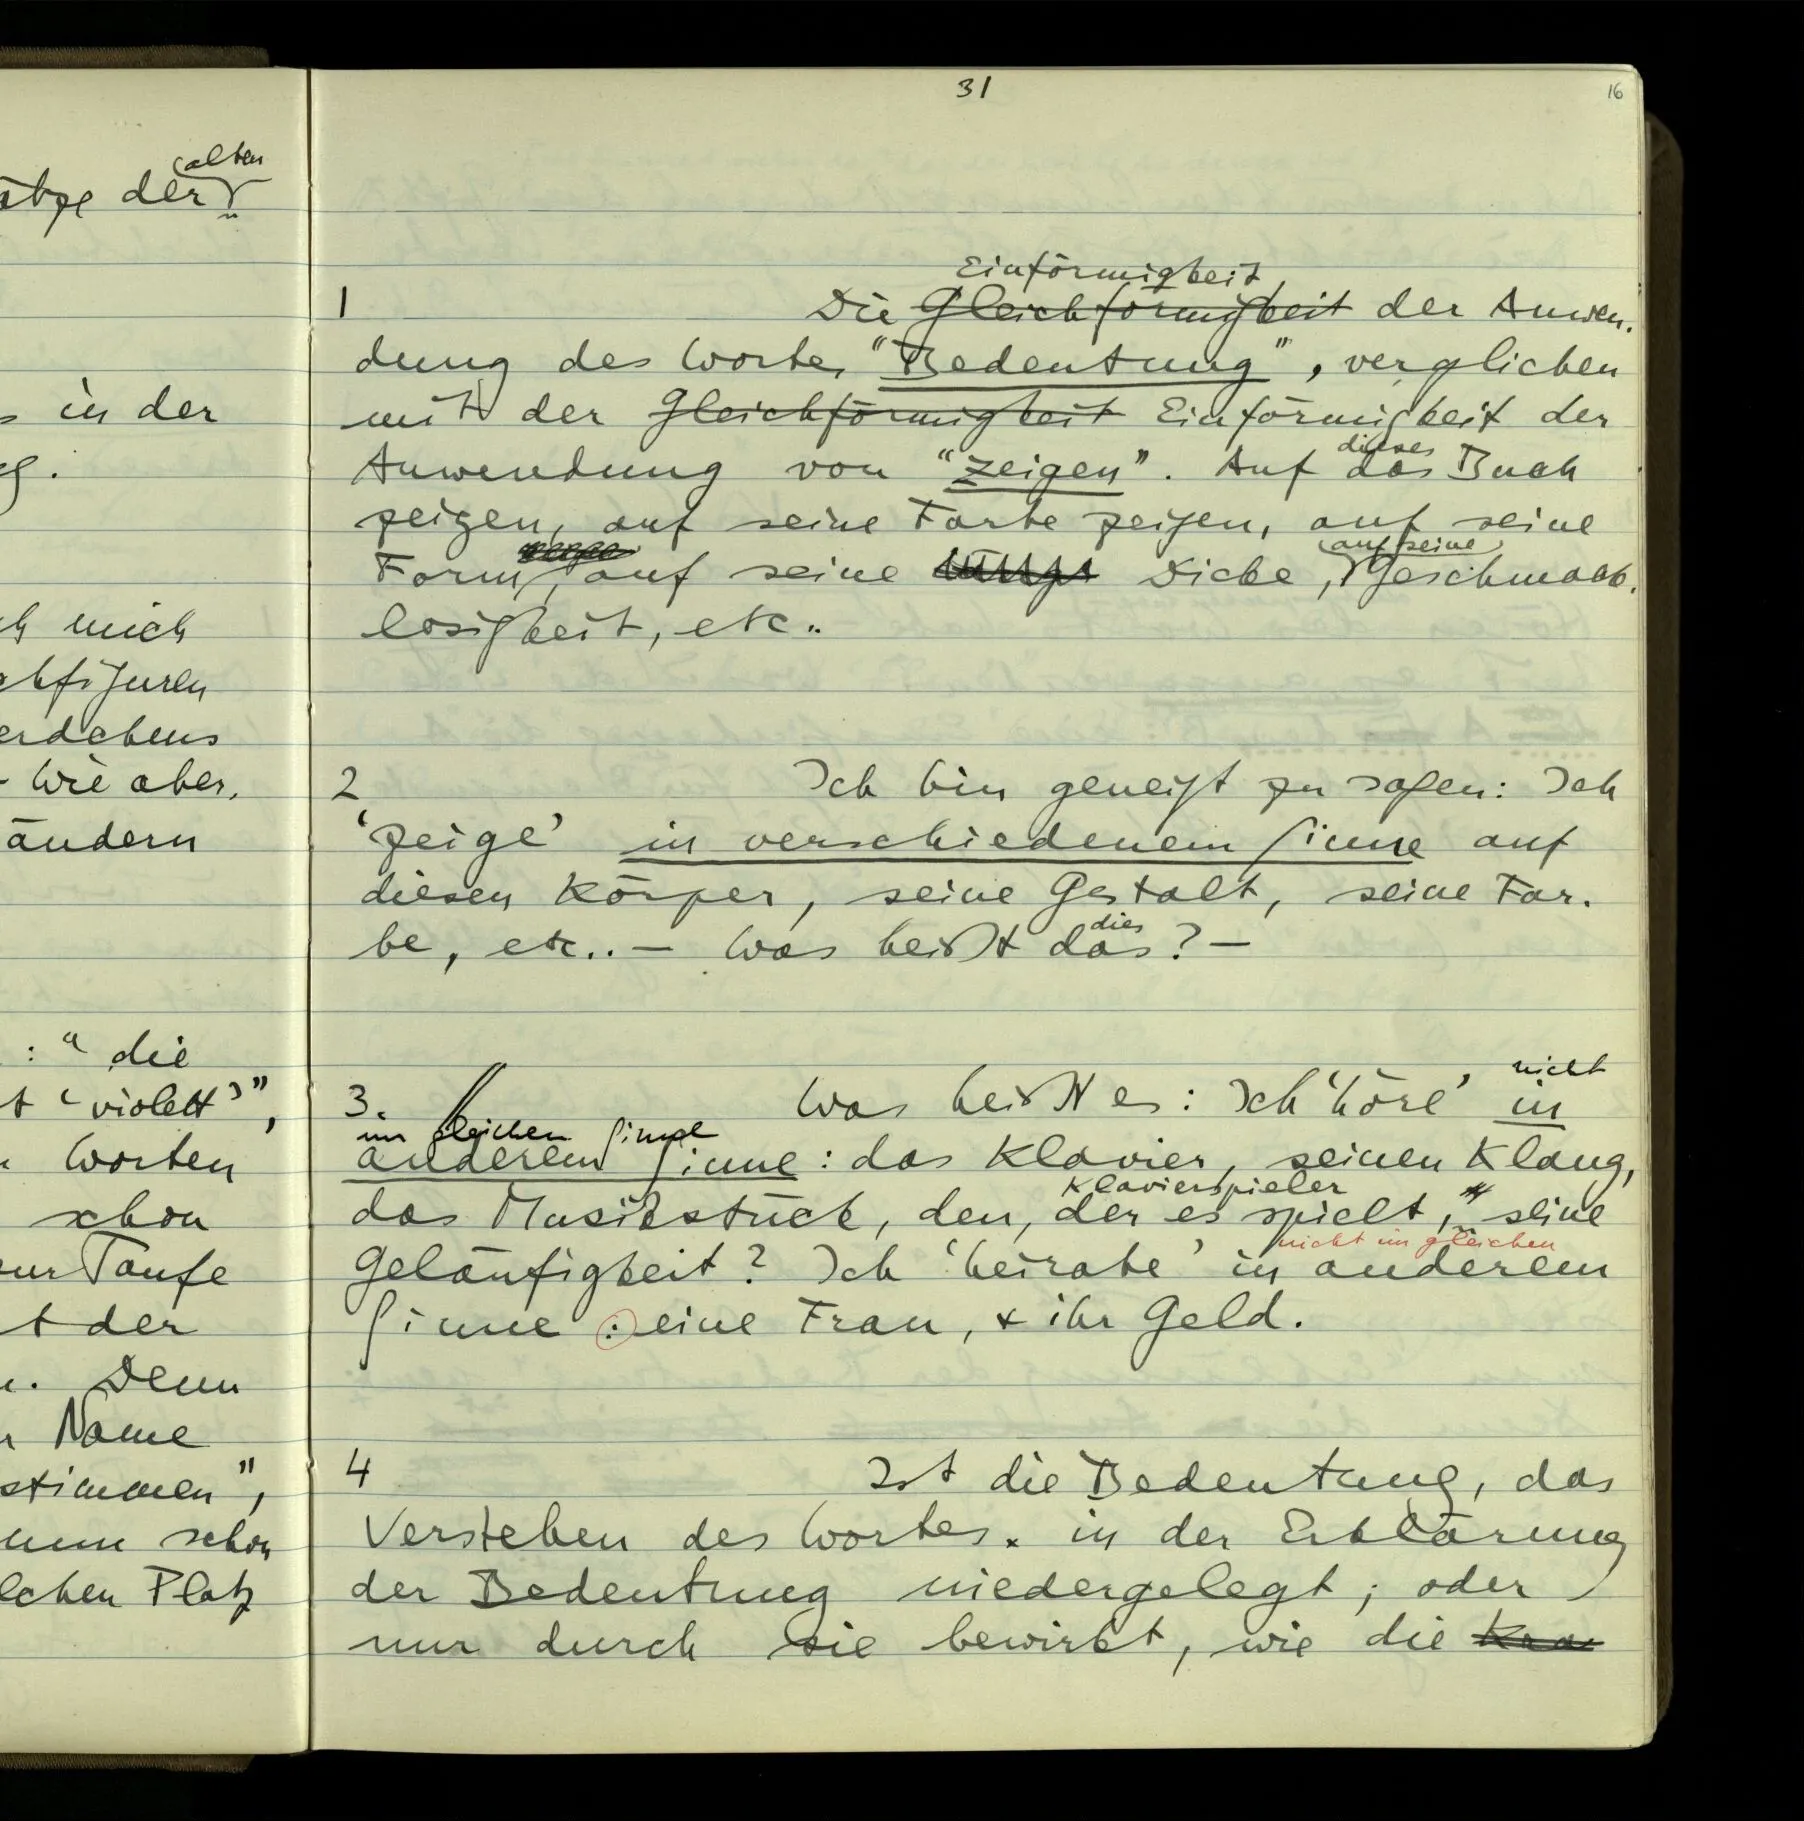 alten
der
in der
mich
figuren
Wie aber,
ändern
: "die
'violett'",
Worten
schon
zur Taufe
der
Denn
Name
stimmen",
schon
Platz
31
16
Einförmigkeit
1 Die Gleichförmigkeit der Anwen-
dung des Wortes "Bedeutung", verglichen
mit der Gleichförmigkeit Einförmigkeit der
dieses
Anwendung von "zeigen". Auf das Buch
zeigen, auf seine Farbe zeigen, auf seine
auf seine
Form, auf seine Dicke, Geschmack-
losigkeit, etc..
2 Ich bin geneigt zu sagen: Ich
'zeige' in verschiedenem Sinne auf
diesen Körper, seine Gestalt, seine Far-
dies
be, etc.. — Was heißt das? —
nicht
3. Was heißt es: Ich 'höre' in
im gleichen Sinne
anderem Sinne: das Klavier, seinen Klang,
Klavierspieler
das Musikstück, den, der es spielt, seine
nicht im gleichen
Geläufigkeit? Ich 'heirate' in anderem
Sinne : eine Frau, & ihr Geld.
4 Ist die Bedeutung, das
Verstehen des Wortes in der Erklärung
der Bedeutung niedergelegt; oder
nur durch sie bewirkt, wie die